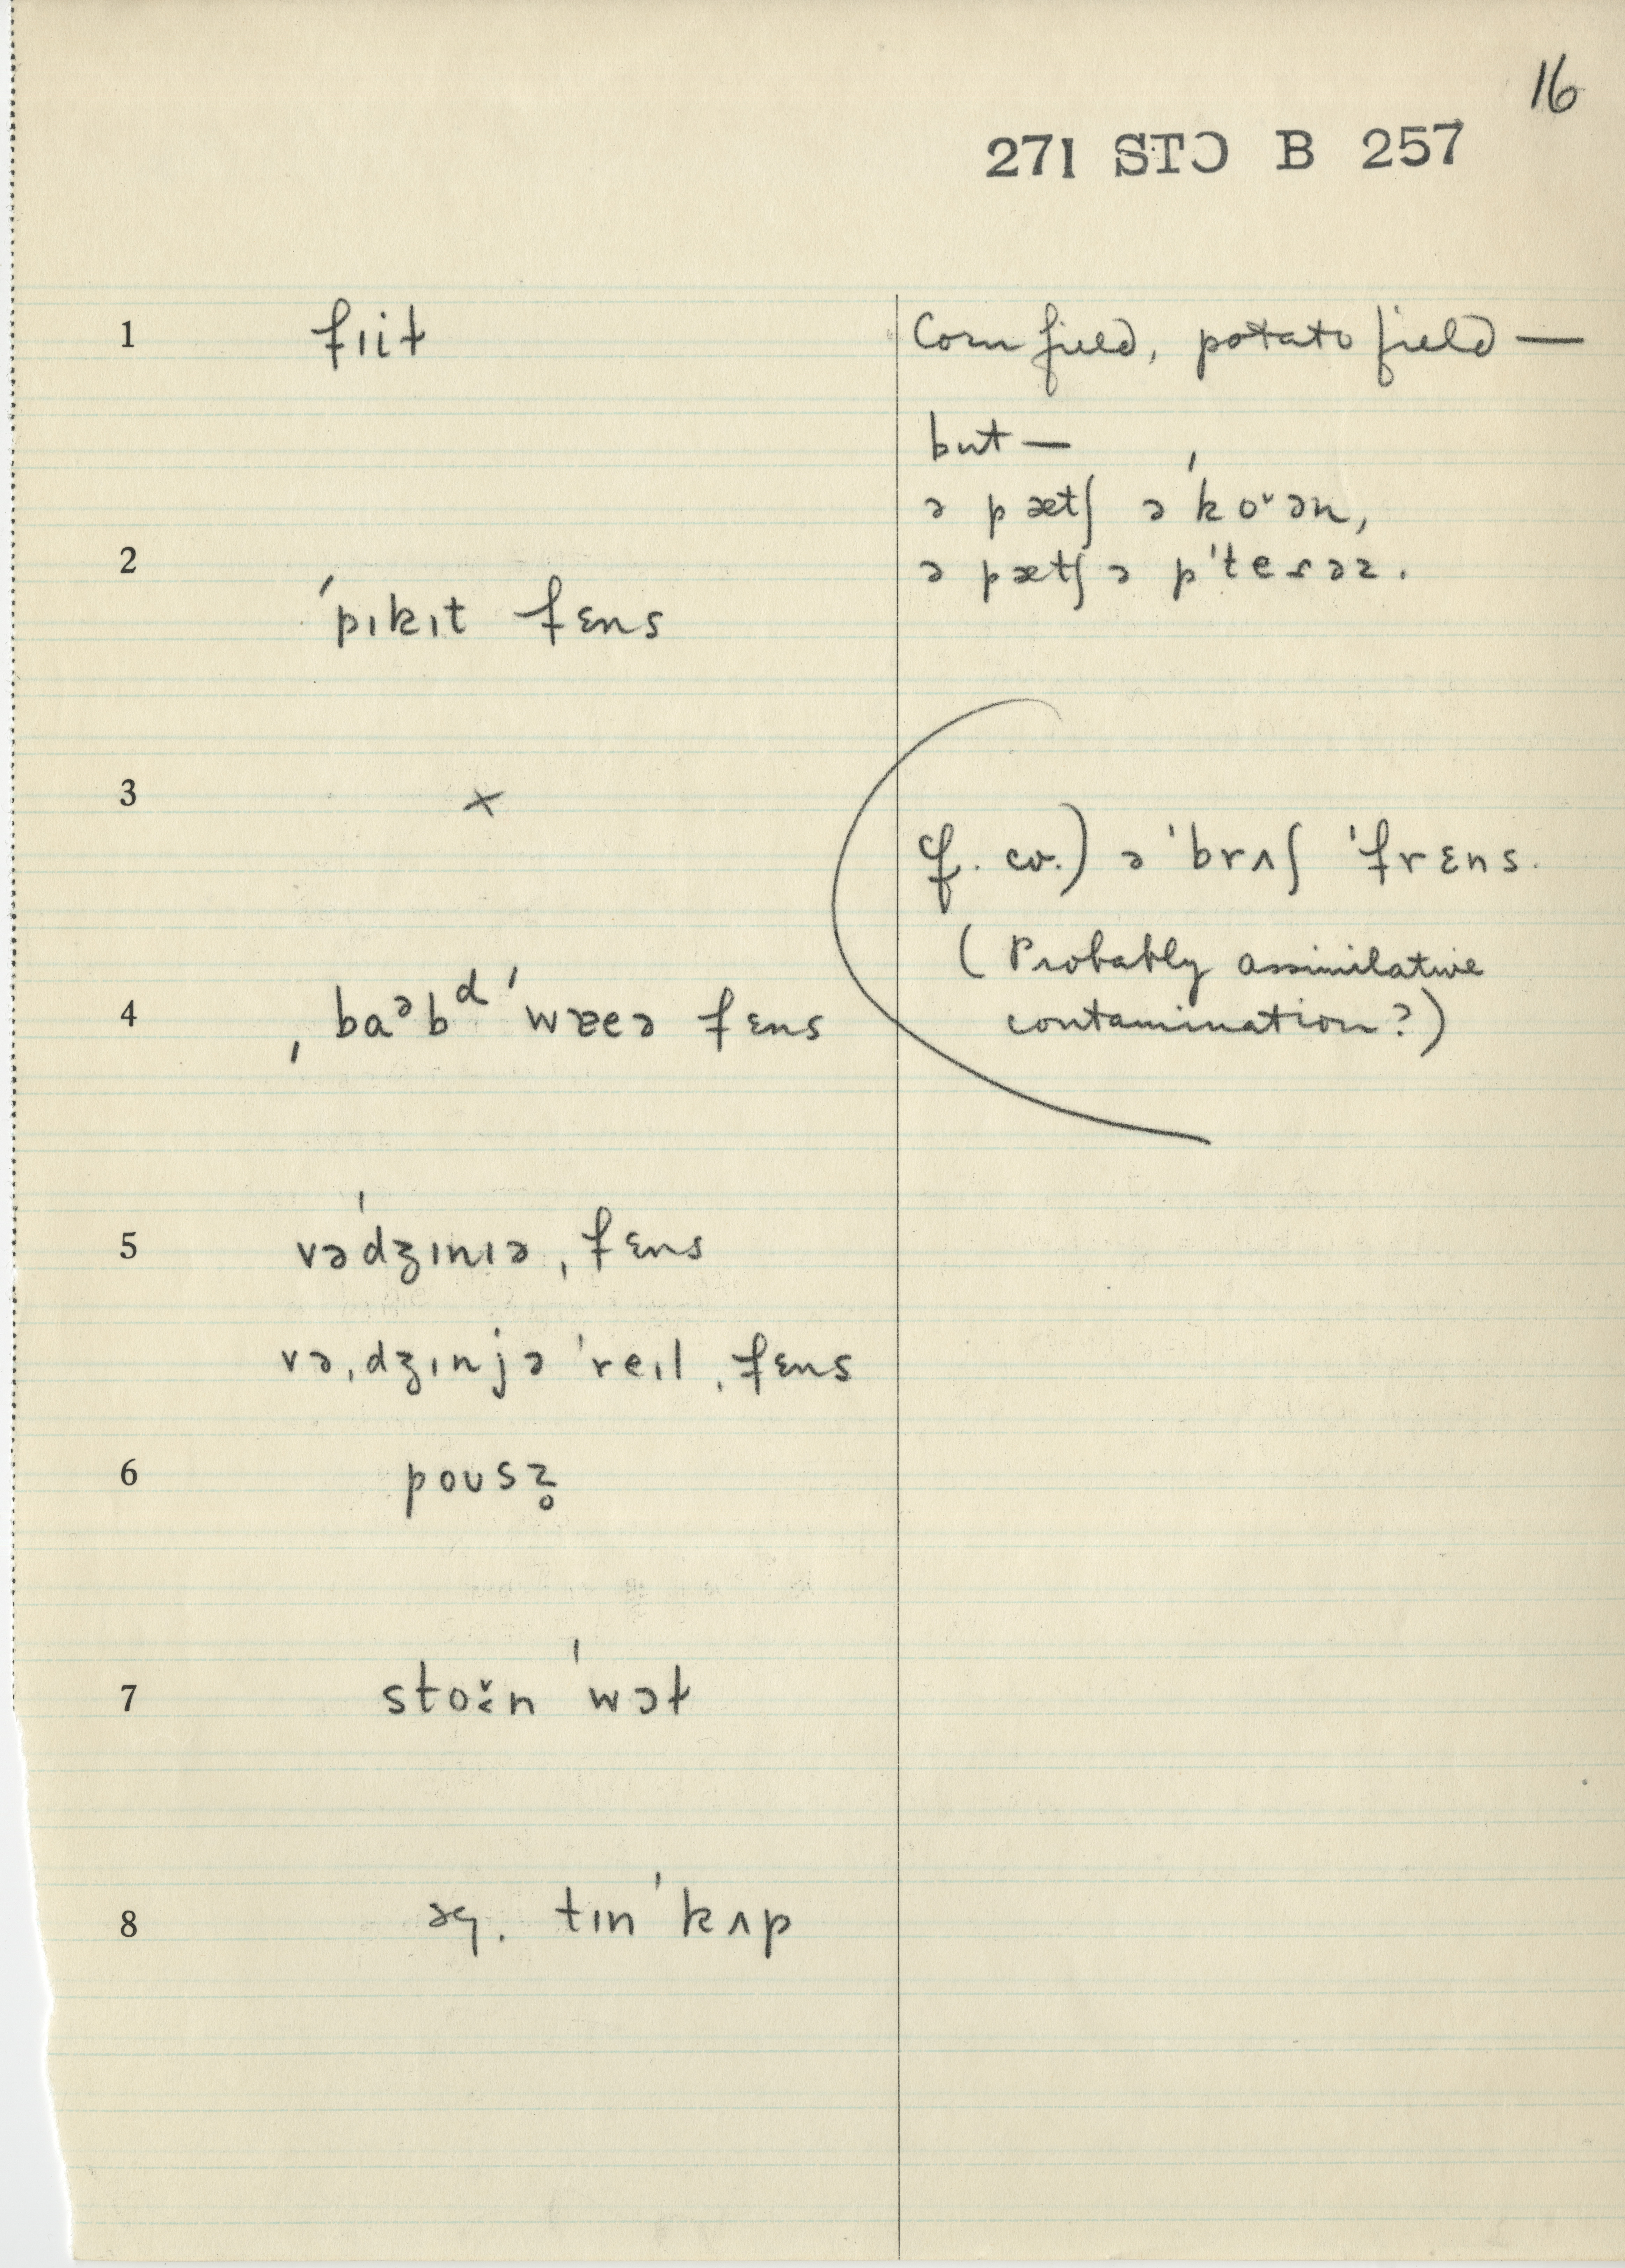 16
271 STƆ B 257
1 fɪiɫ
Corn field, potato field —
but —
ə pætʃ ə ˈkoˇən,
2 ˈpɪkɪt fɛns
ə pætʃ ə pˈteɾəz.
3 ×
cf. cv.) ə ˈbrʌʃ ˈfrɛns.
(Probably assimilative
contamination?)
4 ˌbaᵊbᵈ ˈwɐeə fɛns
5 vəˈdʒɪnɪə ˌfɛns
vəˌdʒɪnjə ˈreɪl ˌfɛns
6 poʊsz̥
7 stoˇːn ˈwɔɫ
8 sg. tɪn ˈkʌp